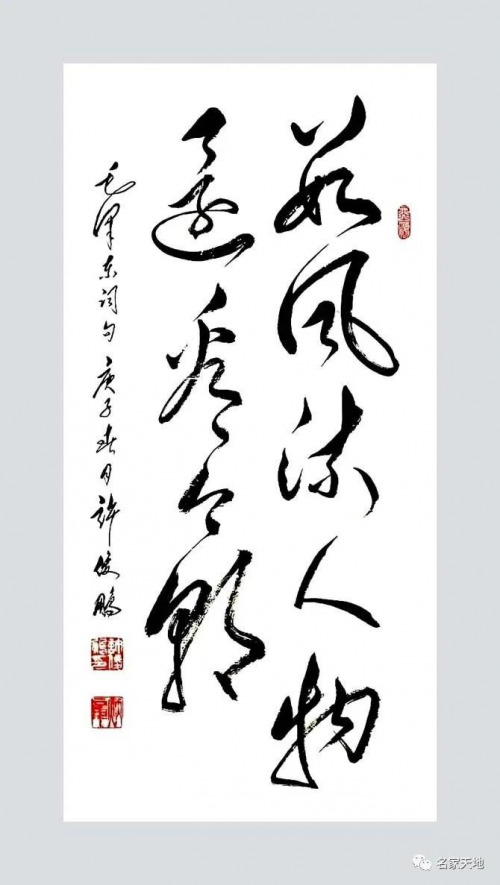 数风流人物
还看今朝
毛泽东词句 庚子春月许俊鹏
名家天地